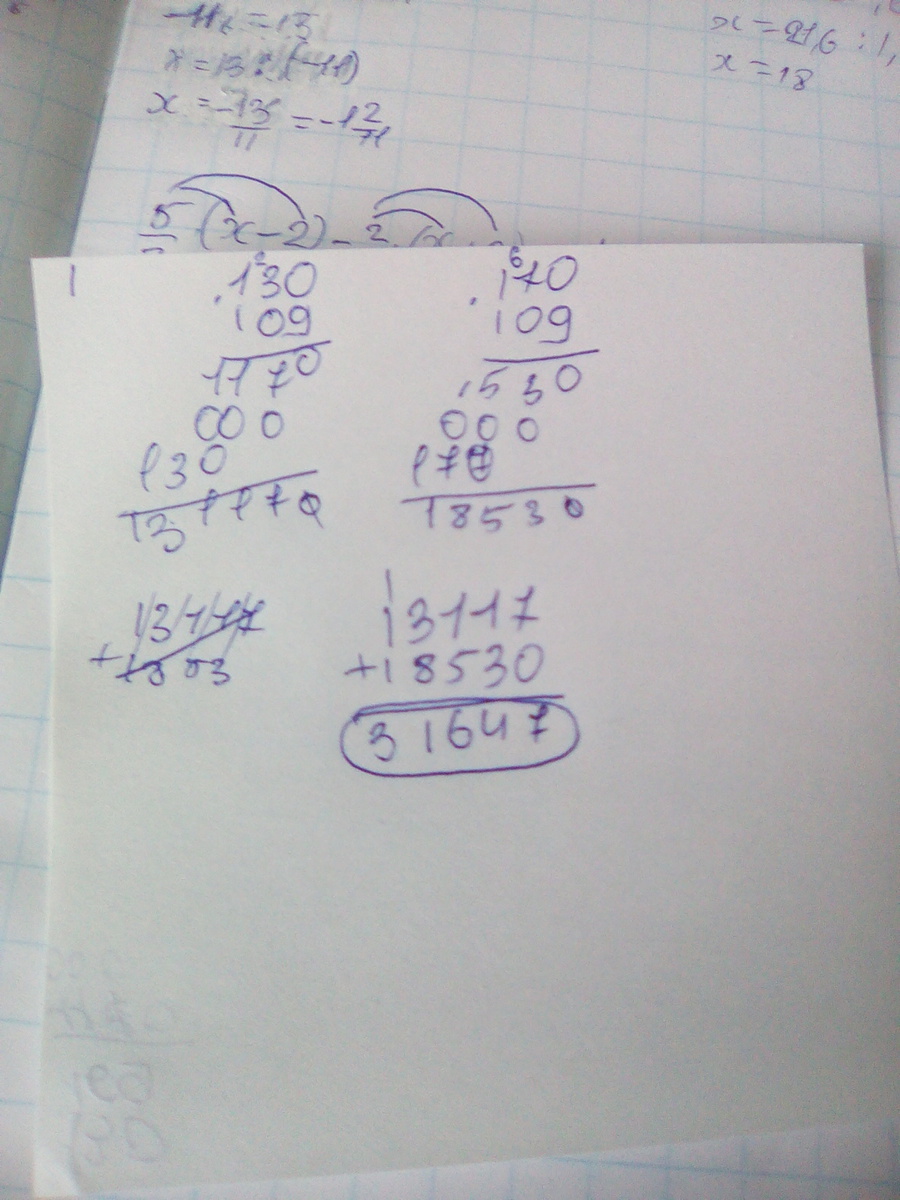 -11x = 13
x = 13 : (-11)
x = -13/11 = -1 2/11
x = 21,6 : 1,
x = 18
5 (x-2) - 2
1
130
109
1170
000
130
131170
6
170
109
1530
000
170
18530
13117
+1853
1
13117
+18530
31647